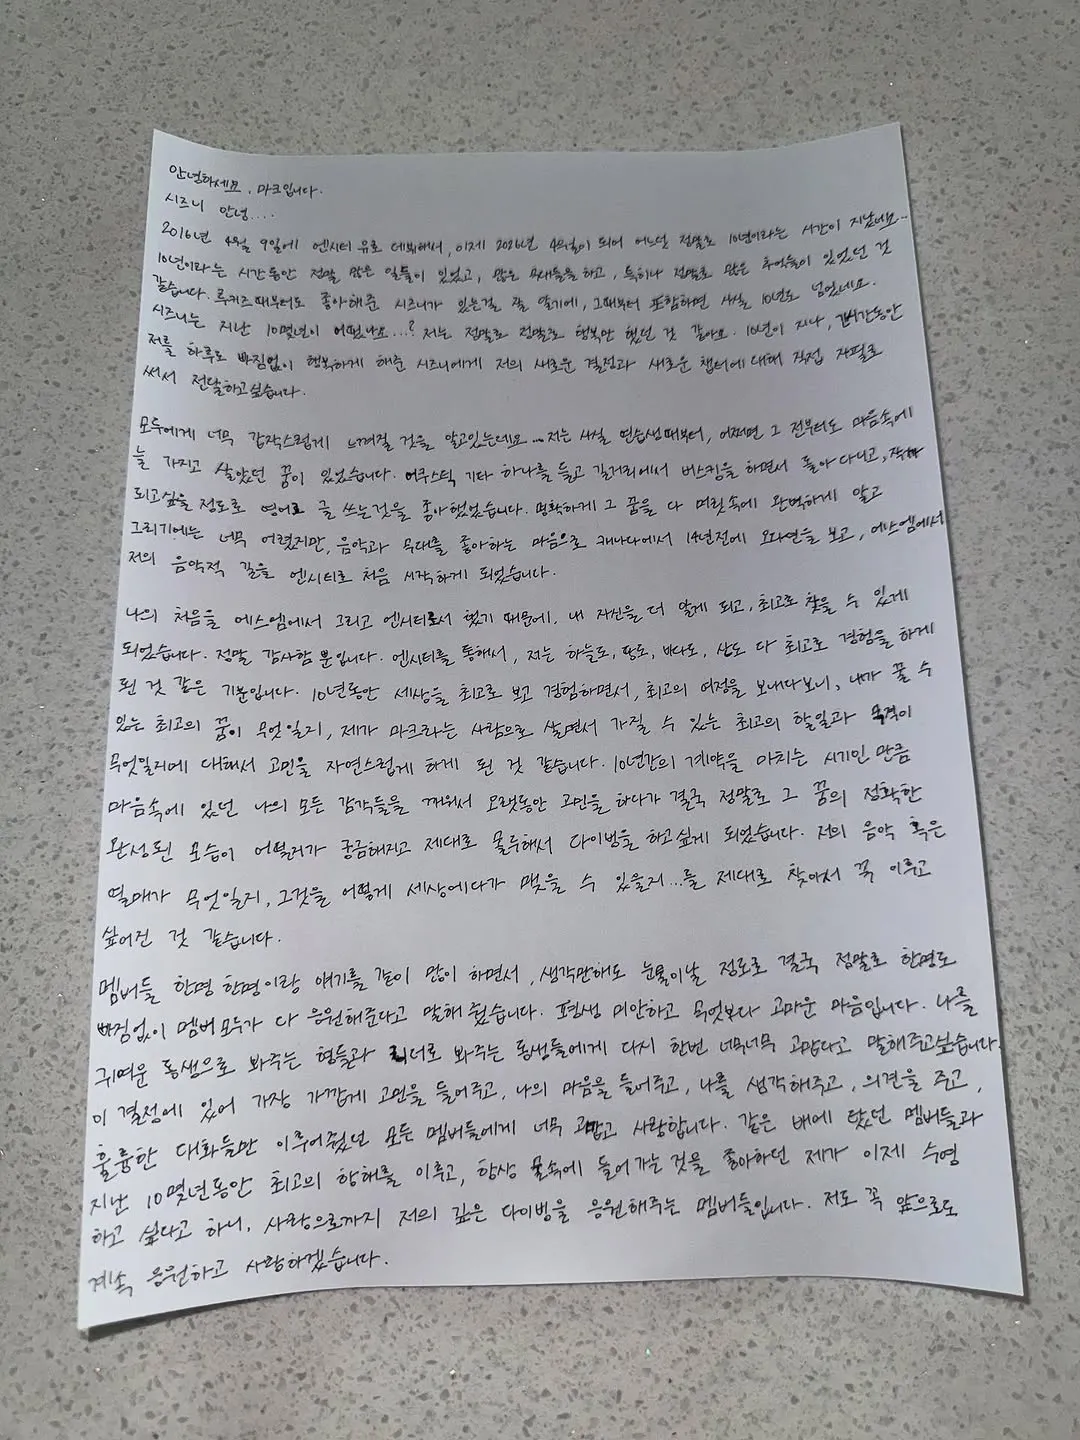 안녕하세요, 마크입니다.
시즈니 안녕....
2016년 4월 9일에 엔시티 유로 데뷔해서, 이제 2026년 4월이 되어 어느덧 정말로 10년이라는 시간이 지났네요..
10년이라는 시간동안 정말 많은 일들이 있었고, 많은 무대들을 하고, 특히나 정말로 많은 추억들이 있었던 것
같습니다. 루키즈때부터도 좋아해준 시즈니가 있는걸 잘 알기에, 그때부터 포함하면 사실 10년도 넘었네요.
시즈니는 지난 10몇년이 어땠나요...? 저는 정말로 정말로 행복만 했던 것 같아요. 10년이 지나, 긴시간동안
저를 하루도 빠짐없이 행복하게 해준 시즈니에게 저의 새로운 결정과 새로운 챕터에 대해 직접 자필로
써서 전달하고싶습니다.
모두에게 너무 갑작스럽게 느껴질 것을 알고있는데요... 저는 사실 연습생때부터, 어쩌면 그 전부터도 마음속에
늘 가지고 살았던 꿈이 있었습니다. 어쿠스틱 기타 하나를 들고 길거리에서 버스킹을 하면서 돌아다니고, 작가
되고싶을 정도로 영어로 글 쓰는것을 좋아했었습니다. 명확하게 그 꿈을 다 머릿속에 완벽하게 알고
그리기에는 너무 어렸지만, 음악과 무대를 좋아하는 마음으로 캐나다에서 14년전에 오디션을 보고, 에스엠에서
저의 음악적 길을 엔시티로 처음 시작하게 되었습니다.
나의 처음을 에스엠에서 그리고 엔시티로서 했기 때문에, 내 자신을 더 알게 되고, 최고로 찾을 수 있게
되었습니다. 정말 감사함 뿐입니다. 엔시티를 통해서, 저는 하늘도, 땅도, 바다도, 산도 다 최고로 경험을 하게
된 것 같은 기분입니다. 10년동안 세상을 최고로 보고 경험하면서, 최고의 여정을 보내다보니, 내가 꿀 수
있는 최고의 꿈이 무엇일지, 제가 마크라는 사람으로 살면서 가질 수 있는 최고의 할일과 목적이
무엇일지에 대해서 고민을 자연스럽게 하게 된 것 같습니다. 10년간의 계약을 마치는 시기인 만큼
마음속에 있던 나의 모든 감각들을 깨워서 오랫동안 고민을 하다가 결국 정말로 그 꿈의 정확한
완성된 모습이 어떨지가 궁금해지고 제대로 몰두해서 다이빙을 하고싶게 되었습니다. 저의 음악 혹은
열매가 무엇일지, 그것을 어떻게 세상에다가 맺을 수 있을지...를 제대로 찾아서 꼭 이루고
싶어진 것 같습니다.
멤버들 한명 한명이랑 얘기를 같이 많이 하면서, 생각만해도 눈물이날 정도로 결국 정말로 한명도
빠짐없이 멤버 모두가 다 응원해준다고 말해 줬습니다. 평생 미안하고 무엇보다 고마운 마음입니다. 나를
귀여운 동생으로 봐주는 형들과 리더로 봐주는 동생들에게 다시 한번 너무너무 고맙다고 말해주고싶습니다.
이 결정에 있어 가장 가깝게 고민을 들어주고, 나의 마음을 들어주고, 나를 생각해주고, 의견을 주고,
훌륭한 대화들만 이루어줬던 모든 멤버들에게 너무 고맙고 사랑합니다. 같은 배에 탔던 멤버들과
지난 10몇년동안 최고의 항해를 이루고, 항상 물속에 들어가는것을 좋아하던 제가 이제 수영
하고 싶다고 하니, 사랑으로까지 저의 깊은 다이빙을 응원해주는 멤버들입니다. 저도 꼭 앞으로도
계속 응원하고 사랑하겠습니다.